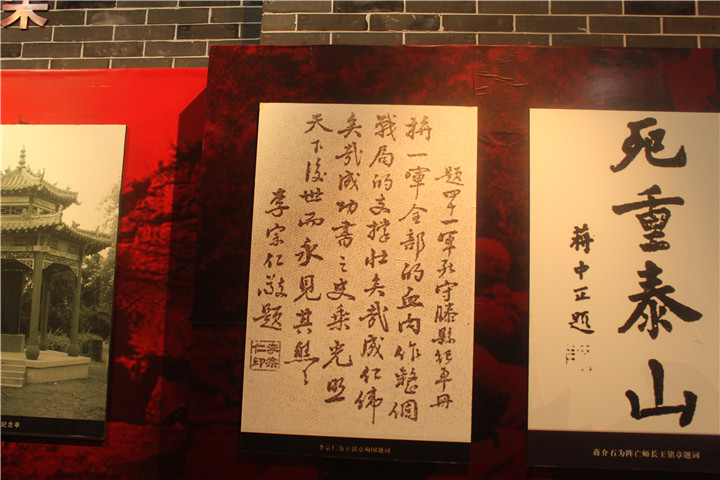 纪念亭
題四十一軍死守滕縣紀事冊
將一軍全部的血肉作整個
戰局的支撐壯矣哉成仁偉
矣哉成功書之史乘光昭
天下後世而永見其熊々
李宗仁敬題
李宗仁印
李宗仁为王铭章殉国题词
死重泰山
蔣中正題
蒋介石为阵亡师长王铭章题词